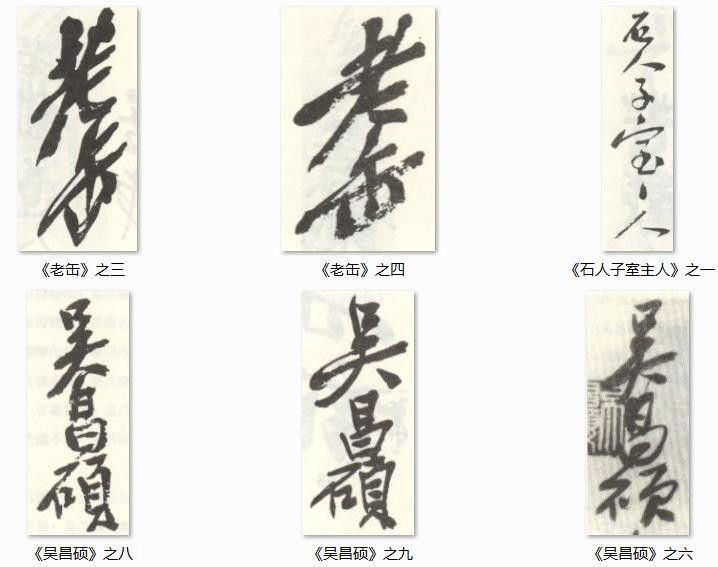 老缶
老缶
石人子室主人
《老缶》之三
《老缶》之四
《石人子室主人》之一
吴昌硕
吴昌硕
吴昌硕
《吴昌硕》之八
《吴昌硕》之九
《吴昌硕》之六